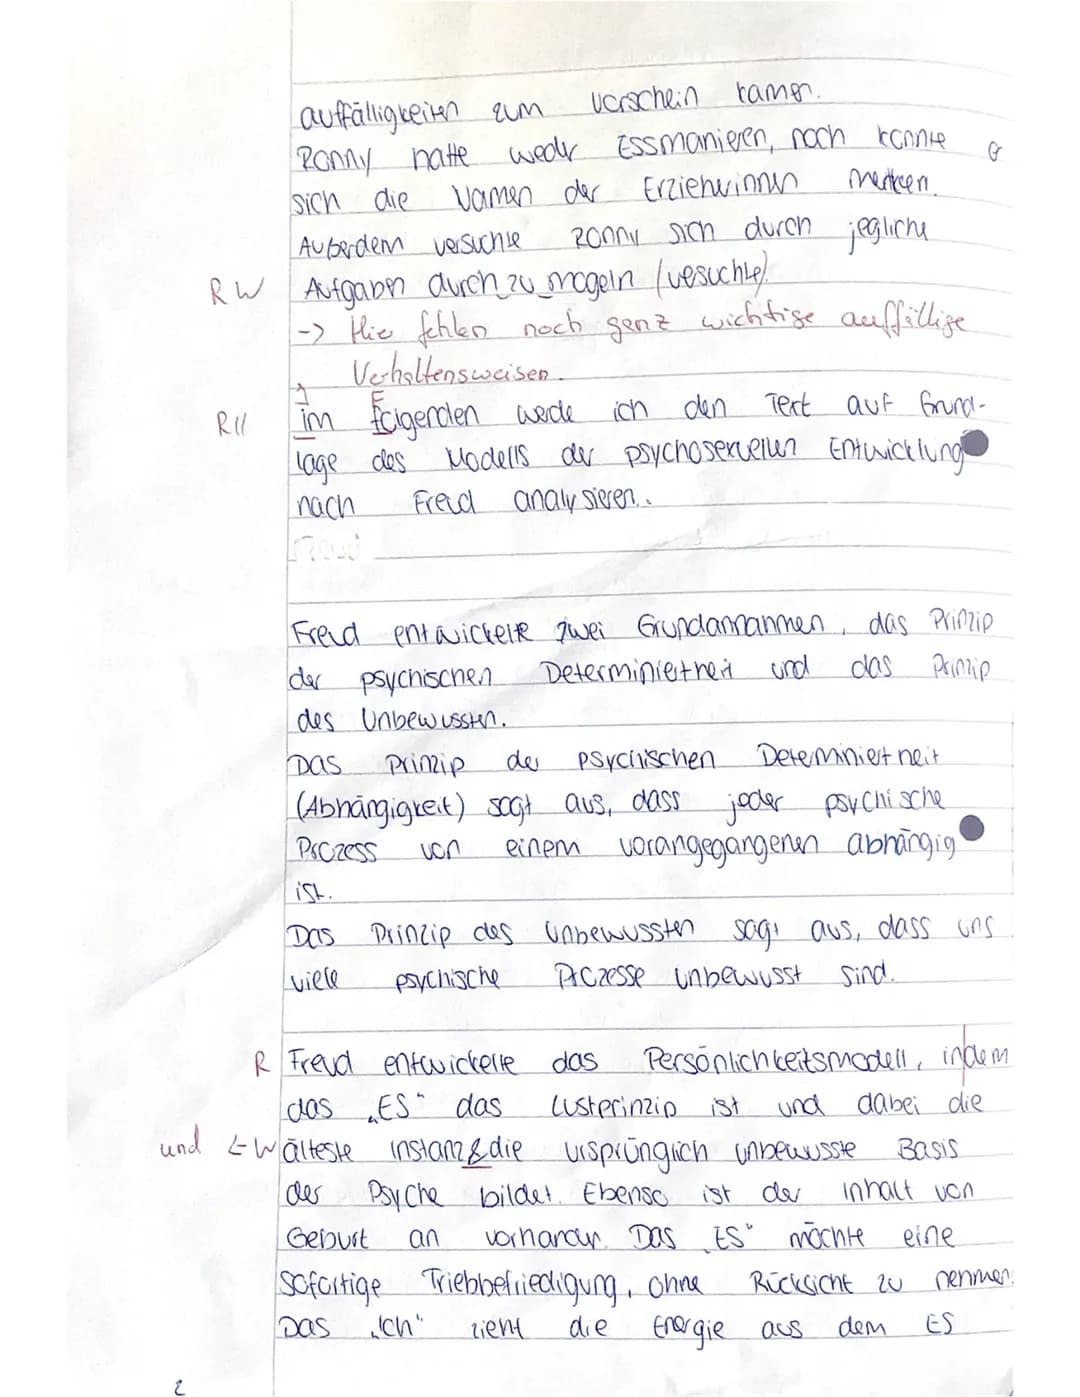 auffälligkeiten zum Vorschein kamen.
Ronny hatte weder Essmanieren, noch konnte er
sich die Namen der Erzieherinnen merken.
Außerdem versuchte Ronny sich durch jegliche
RW Aufgaben durch zu mogeln (vesuchte).
-> Hier fehlen noch ganz wichtige auffällige
Verhaltensweisen.
R// im folgenden werde ich den Text auf Grund-
I F
lage des Modells der psychosexuellen Entwicklung
nach Freud analysieren.
Freud entwickelte zwei Grundannahmen, das Prinzip
der psychischen Determiniertheit und das Prinzip
des Unbewussten.
Das Prinzip der psychischen Determiniertheit
(Abhängigkeit) sagt aus, dass jeder psychische
Prozess von einem vorangegangenen abhängig
ist.
Das Prinzip des Unbewussten sagt aus, dass uns
viele psychische Prozesse unbewusst sind.
R Freud entwickelte das Persönlichkeitsmodell, indem
das „ES“ das Lustprinzip ist und dabei die
und ←W älteste Instanz & die ursprünglich unbewusste Basis
der Psyche bildet. Ebenso ist der Inhalt von
Geburt an vorhanden. Das „ES“ möchte eine
sofortige Triebbefriedigung, ohne Rücksicht zu nehmen.
Das „Ich“ zieht die Energie aus dem ES
2